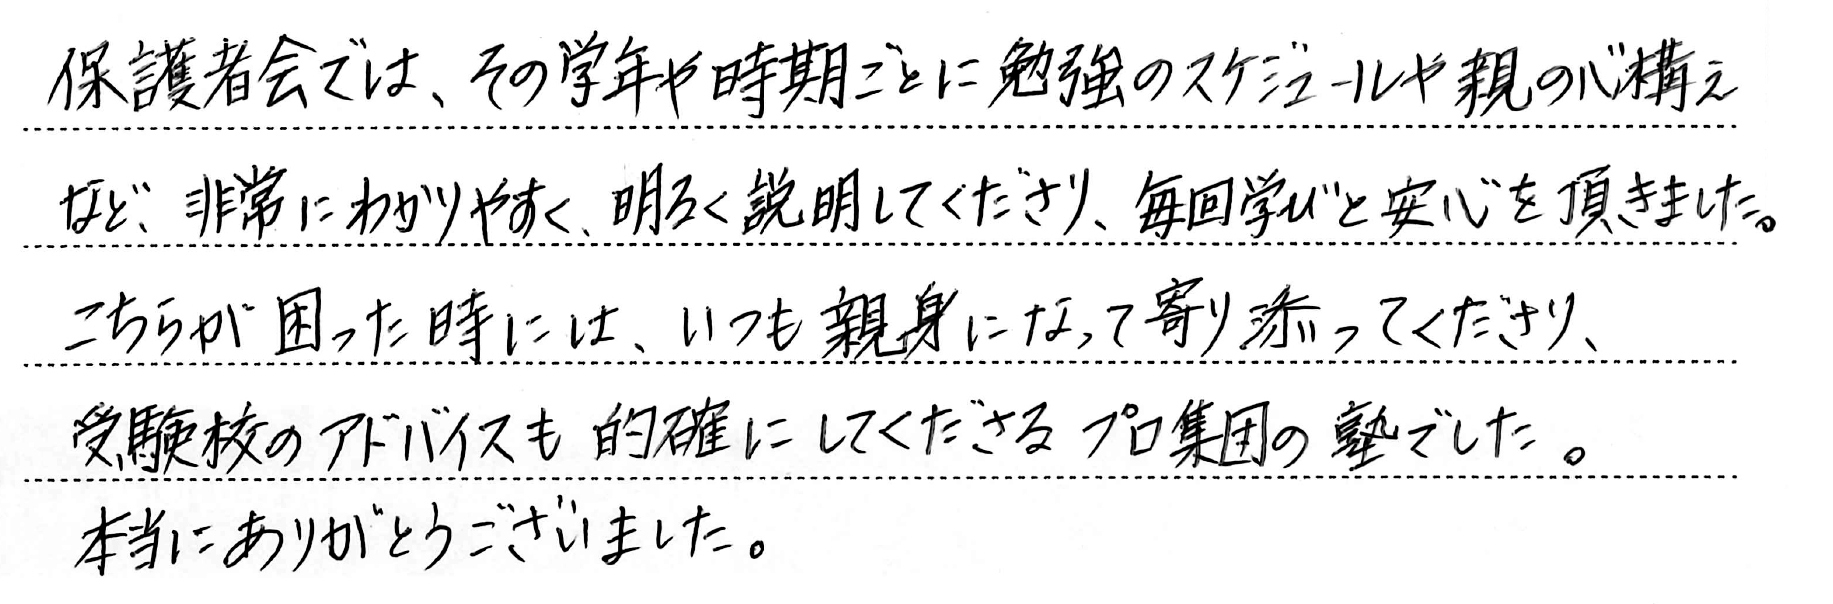 保護者会では、その学年や時期ごとに勉強のスケジュールや親の心構え
など、非常にわかりやすく、明るく説明してくださり、毎回学びと安心を頂きました。
こちらが困った時には、いつも親身になって寄り添ってくださり、
受験校のアドバイスも的確にしてくださるプロ集団の塾でした。
本当にありがとうございました。